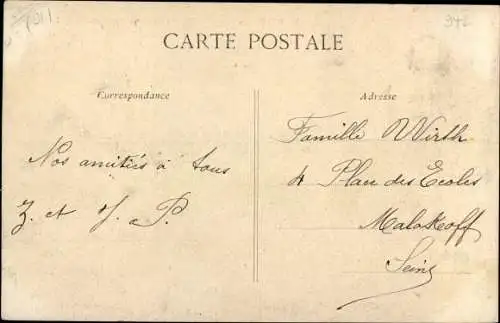 CARTE POSTALE
Correspondance
Adresse
Nos amitiés à tous
Z. et J. P.
Famille Wirth
4 Place des Ecoles
Malakoff
Seine